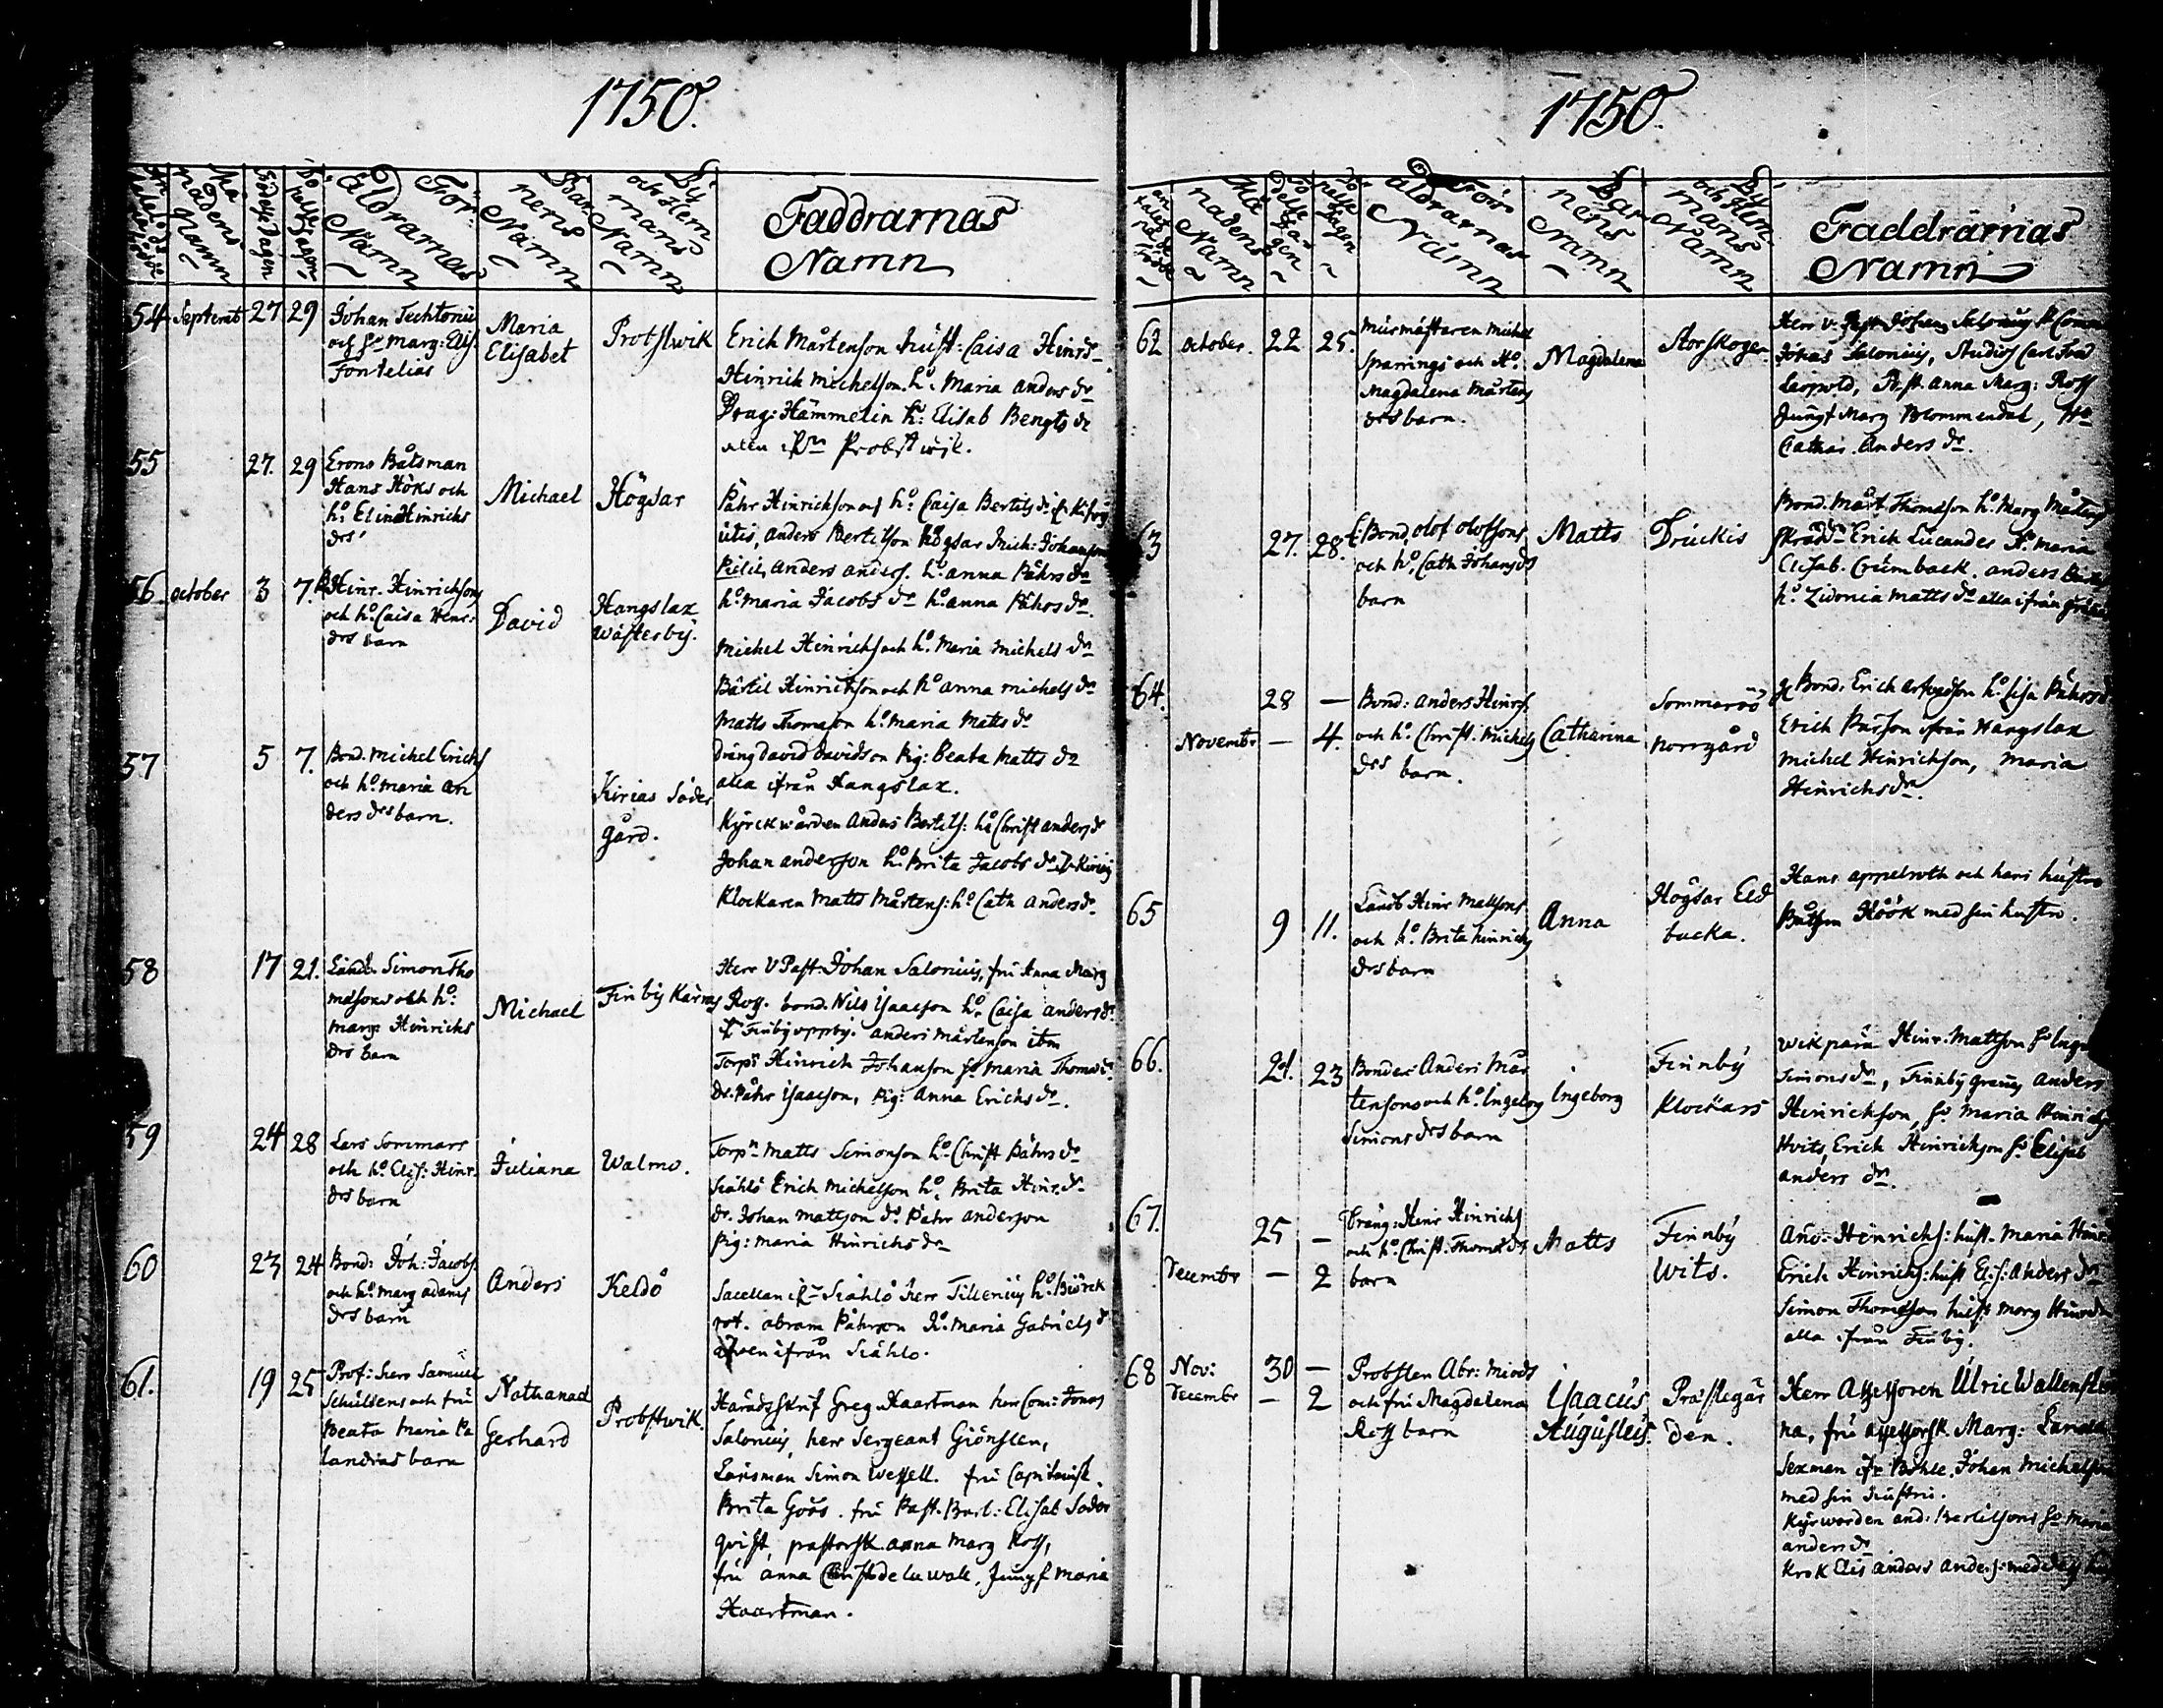 1750.
Må
nadens
Namn
Födelse Dagen
För
äldrarnas
Namn
Bar
nens
Namn
By
och Hem
mans
Namn
Faddrarnas
Namn
54 Septemb 27 29
Johan Techtonii
och ho marg: Elis.
Fontelias
Maria
Elisabet
Probstwik
Erich Mårtenson hust: Caisa Hinrs
Hinrich Michelson. ho: Maria anders dr
Drag: Hämmelin ho: Elisab Bengts dr
Probstwik.
55 27. 29
Erono Båtsman
Hans Höks och
ho. Elin Hinrichs
drs
Michael
Högsar
Påhr Hinrichson och ho Caisa Bertils dr
anders Bertilson Högsar Mich: Johanson
anders anders. ho. anna Påhrs dr
ho. Maria Jacobs dr ho. anna Påhrs dr
56. october 3 7.
Hinr. Hinrichsons
och ho. Caisa Henr:
drs barn
David
Hangslax
Wästerby.
Michel Hinrichs och ho. Maria Michels dr
Bärtil Hinrichson och ho anna michels dr
Matts Thomason ho. Maria Matts dr
dräng David Davidson Pig: Beata Matts dr
alla ifrån Hangslax.
57 5 7.
Bond. Michel Erichs
och ho. maria an
ders drs barn.
Kirias Söder
gård.
Kyrckwärden Anders Bertils: ho Christ anders dr
Johan anderson ho. Brita Jacobs dr
Klockaren Matts Mårtens: ho. Cath anders dr
58 17 21.
Landb. Simon Tho
masons och ho:
marg Hinrichs
drs barn
Michael
Finby Kärna
Herr V Past. Johan Salonius, fru Anna Marg
Ross. bond. Nils Isaacson ho. Caisa anders dr
Finby uppby. anders mårtenson item
Torpr Hinrich Johanson ho Maria Thoms dr
dr. Påhr Isaacson, Pig: Anna Erichs dr.
59 24 28
Lars Sommars
och ho. Elis: Hinr.
drs barn
Juliana
Walmo.
Torpn Matts Simonson ho. Christ Påhrs dr
Siählö Erich Michelson ho. Brita Hinr. dr
dr. Johan Mattson dr. Påhr anderson
Pig: Maria Hinrichs dr
60 23 24
Bond: Joh: Jacobs
och ho. marg adams
drs barn
Anders
Keldö
Sacellan Siählö herr Tillenius ho. Biörck
rot. abram Påhrson ho. Maria Gabriels dr
även ifrån Siählo.
61. 19 25
Prof: herr Samuel
Schultens och fru
Beata Maria Pa
landrias barn
Nathanael
Gerhard
Probstwik.
Häradsskrif Greg Haartman herr Com: Jonas
Salonius, herr Sergeant Giönsten,
Länsman Simon Wessell. fru Capitainsk.
Brita Göös. fru Past. Barb: Elisab Söder
qvist, pastorsk anna Marg Ross,
fru anna Christ de la wall, Jungf maria
Haartman.
1750.
Må
nadens
Namn
För
äldrarnas
Namn
Bar
nens
Namn
By
och Hem
mans
Namn
Faddrarnas
Namn
62 october. 22 25.
Murmästaren Michel
Sparrings och Ho.
Magdalena Mårtens
drs barn.
Magdalena
Storskogen
Herr V: Past Johan Salonius
Jonas Salonius, Studios Carl Fred
Leopold, anna Marg: Ross
Jungf Marg Blommendal,
Cathar. Anders dr.
63 27. 28.
Bond. olof olofsons
och ho. Cath Johans drs
barn
Matts
Druckis
Bond. Mårt Thomason ho. Marg Mårtens
Skrädd Erich Lucander ho. Maria
Elisab. Crumback. anders
ho. Zidonia Matts dr alla ifrån
64. 28 —
Novembr — 4.
Bond: anders Hinrs.
och ho. Christ. Michels
drs barn.
Catharina
Sommarös
norrgård
Bond. Erich arfvedson ho. Lisa Påhrs dr
Erich Pärson ifrån Hangslax
Michel Hinrichson, Maria
Hinrichs dr.
65 9 11.
Landb Hinr Mattsons
och ho. Brita hinrichs
drs barn
Anna
Högsar Eld
backa.
Hans appelroth och hans hustro
Båtsm Höök med sin hustro.
66. 21. 23
Bonden Anders Mår
tensons och ho. Ingeborg
Simons drs barn
Ingeborg
Finnby
Klockars
Wikpärä Hinr. Mattson ho Inge
Simons dr, Finnby granns Anders
Hinrichson, ho Maria Hinrichs
Hvits, Erich Hinrichson ho Elisab
anders dr.
67. 25 —
Decembr — 2
Dräng: Hinr Hinrichs
och ho. Christ. Thomas drs
barn
Matts
Finnby
Wits.
And. Hinrichs: hust. Maria Hinr
Erich Hinrichs: hust Elis: anders dr
Simon Thomason hust marg Hinrs dr
alla ifrån Finby.
68 Nov: 30 —
Decembr — 2
Probsten Abr: Miöds
och fru Magdalena
Ross barn
Isaacus
Augustus.
Prästegår
den.
Herr Assessoren Ulric Wallenster
na, fru assessorsk. Marg:
Sexman ifr Böhle. Johan Michelson
med sin hustru.
Kyrwärden and: Bertilsons ho Maria
anders dr
Krok Elis anders anders: med